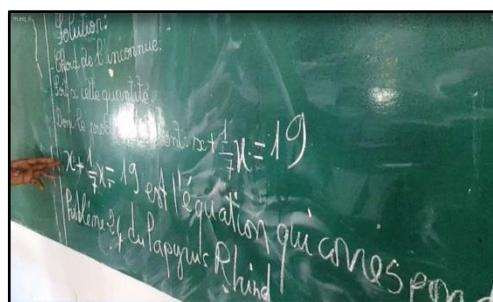 Solution:
- Choix de l'inconnue:
Soit x cette quantité
Donc le : x + 1/7 x = 19
x + 1/7 x = 19 est l'équation qui correspond
Problème 24 du Papyrus Rhind